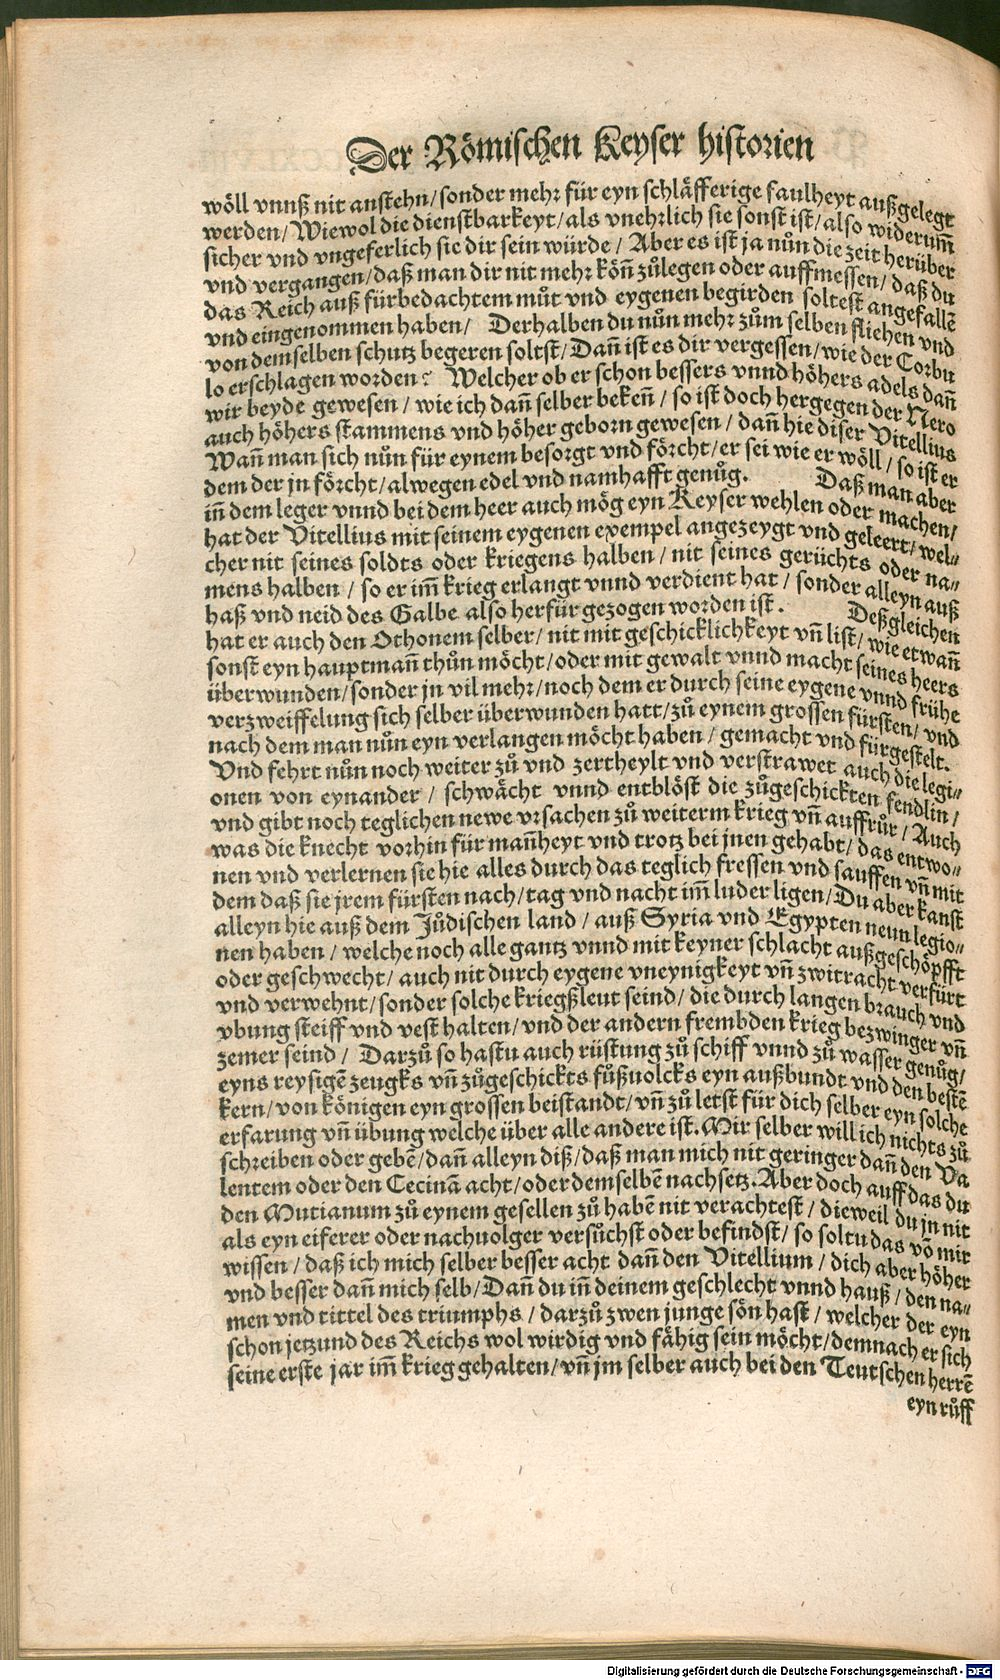 Der Römischen Keyser historien
wöll vnnß nit anstehn/sonder mehr für eyn schläfferige faulheyt außgelegt
werden/Wiewol die dienstbarkeyt/als vnehrlich sie sonst ist/also widerum̃
sicher vnd vngeferlich sie dir sein würde/ Aber es ist ja nůn die zeit herüber
vnd vergangen/daß man dir nit mehr köñ zůlegen oder auffmessen/ daß du
das Reich auß fürbedachtem můt vnd eygenen begirden soltest angefallẽ
vnd eingenommen haben/ Derhalben du nůn mehr zům selben fliehen vnd
von demselben schutz begeren soltst/Dañ ist es dir vergessen/wie der Corbu
lo erschlagen worden? Welcher ob er schon bessers vnnd höhers adels dañ
wir beyde gewesen/ wie ich dañ selber bekeñ/ so ist doch hergegen der Nero
auch höhers stammens vnd höher geborn gewesen/ dañ hie diser Vitellius
Wañ man sich nůn für eynem besorgt vnd förcht/er sei wie er wöll/ so ist er
dem der jn förcht/alwegen edel vnd namhafft genůg. Daß man aber
iñ dem leger vnnd bei dem heer auch mög eyn Keyser wehlen oder machen/
hat der Vitellius mit seinem eygenen exempel angezeygt vnd geleert/ wel⸗
cher nit seines soldts oder kriegens halben/ nit seines gerüchts oder na⸗
mens halben/ so er im̃ krieg erlangt vnnd verdient hat/ sonder alleyn auß
haß vnd neid des Galbe also herfür gezogen worden ist. Deßgleichen
hat er auch den Othonem selber/ nit mit geschicklichkeyt vñ list/ wie etwañ
sonst eyn hauptmañ thůn möcht/oder mit gewalt vnnd macht seines heers
überwunden/sonder jn vil mehr/noch dem er durch seine eygene vnnd frühe
verzweiffelung sich selber überwunden hatt/zů eynem grossen fürsten/ vnd
nach dem man nůn eyn verlangen möcht haben/ gemacht vnd fürgestelt.
Vnd fehrt nůn noch weiter zů vnd zertheylt vnd verstrawet auch die legi⸗
onen von eynander/ schwächt vnnd entblöst die zůgeschickten fendlin/
vnd gibt noch teglichen newe vrsachen zů weiterm krieg vñ auffrůr/ Auch
was die knecht vorhin für mañheyt vnd trotz bei jnen gehabt/ das entwo⸗
nen vnd verlernen sie hie alles durch das teglich fressen vnd sauffen vñ mit
dem daß sie jrem fürsten nach/ tag vnd nacht im̃ luder ligen/Du aber kanst
alleyn hie auß dem Jůdischen land/ auß Syria vnd Egypten neun legio⸗
nen haben/ welche noch alle gantz vnnd mit keyner schlacht außgeschöpfft
oder geschwecht/ auch nit durch eygene vneynigkeyt vñ zwitracht verfürt
vnd verwehnt/sonder solche kriegßleut seind/ die durch langen brauch vnd
vbung steiff vnd vest halten/vnd der andern frembden krieg bezwinger vñ
zemer seind/ Darzů so hastu auch rüstung zů schiff vnnd zů wasser genůg/
eyns reysigẽ zeugks vñ zůgeschickts fůßuolcks eyn außbundt vnd den bestẽ
kern/von königen eyn grossen beistandt/vñ zů letst für dich selber eyn solche
erfarung vñ übung welche über alle andere ist. Mir selber will ich nichts zů
schreiben oder gebẽ/dañ alleyn diß/daß man mich nit geringer dañ den Va
lentem oder den Cecinã acht/oder demselbẽ nachsetz. Aber doch auff das du
den Mutianum zů eynem gesellen zů habẽ nit verachtest/ dieweil du jn nit
als eyn eiferer oder nachuolger versůchst oder befindst/ so soltu das võ mir
wissen/ daß ich mich selber besser acht dañ den Vitellium/ dich aber höher
vnd besser dañ mich selb/Dañ du iñ deinem geschlecht vnnd hauß/ den na⸗
men vnd tittel des triumphs/ darzů zwen junge sön hast/ welcher der eyn
schon jetzund des Reichs wol wirdig vnd fähig sein möcht/demnach er sich
seine erste jar im̃ krieg gehalten/vñ jm selber auch bei den Teutschen herrẽ
eyn růff
Digitalisierung gefördert durch die Deutsche Forschungsgemeinschaft - DFG